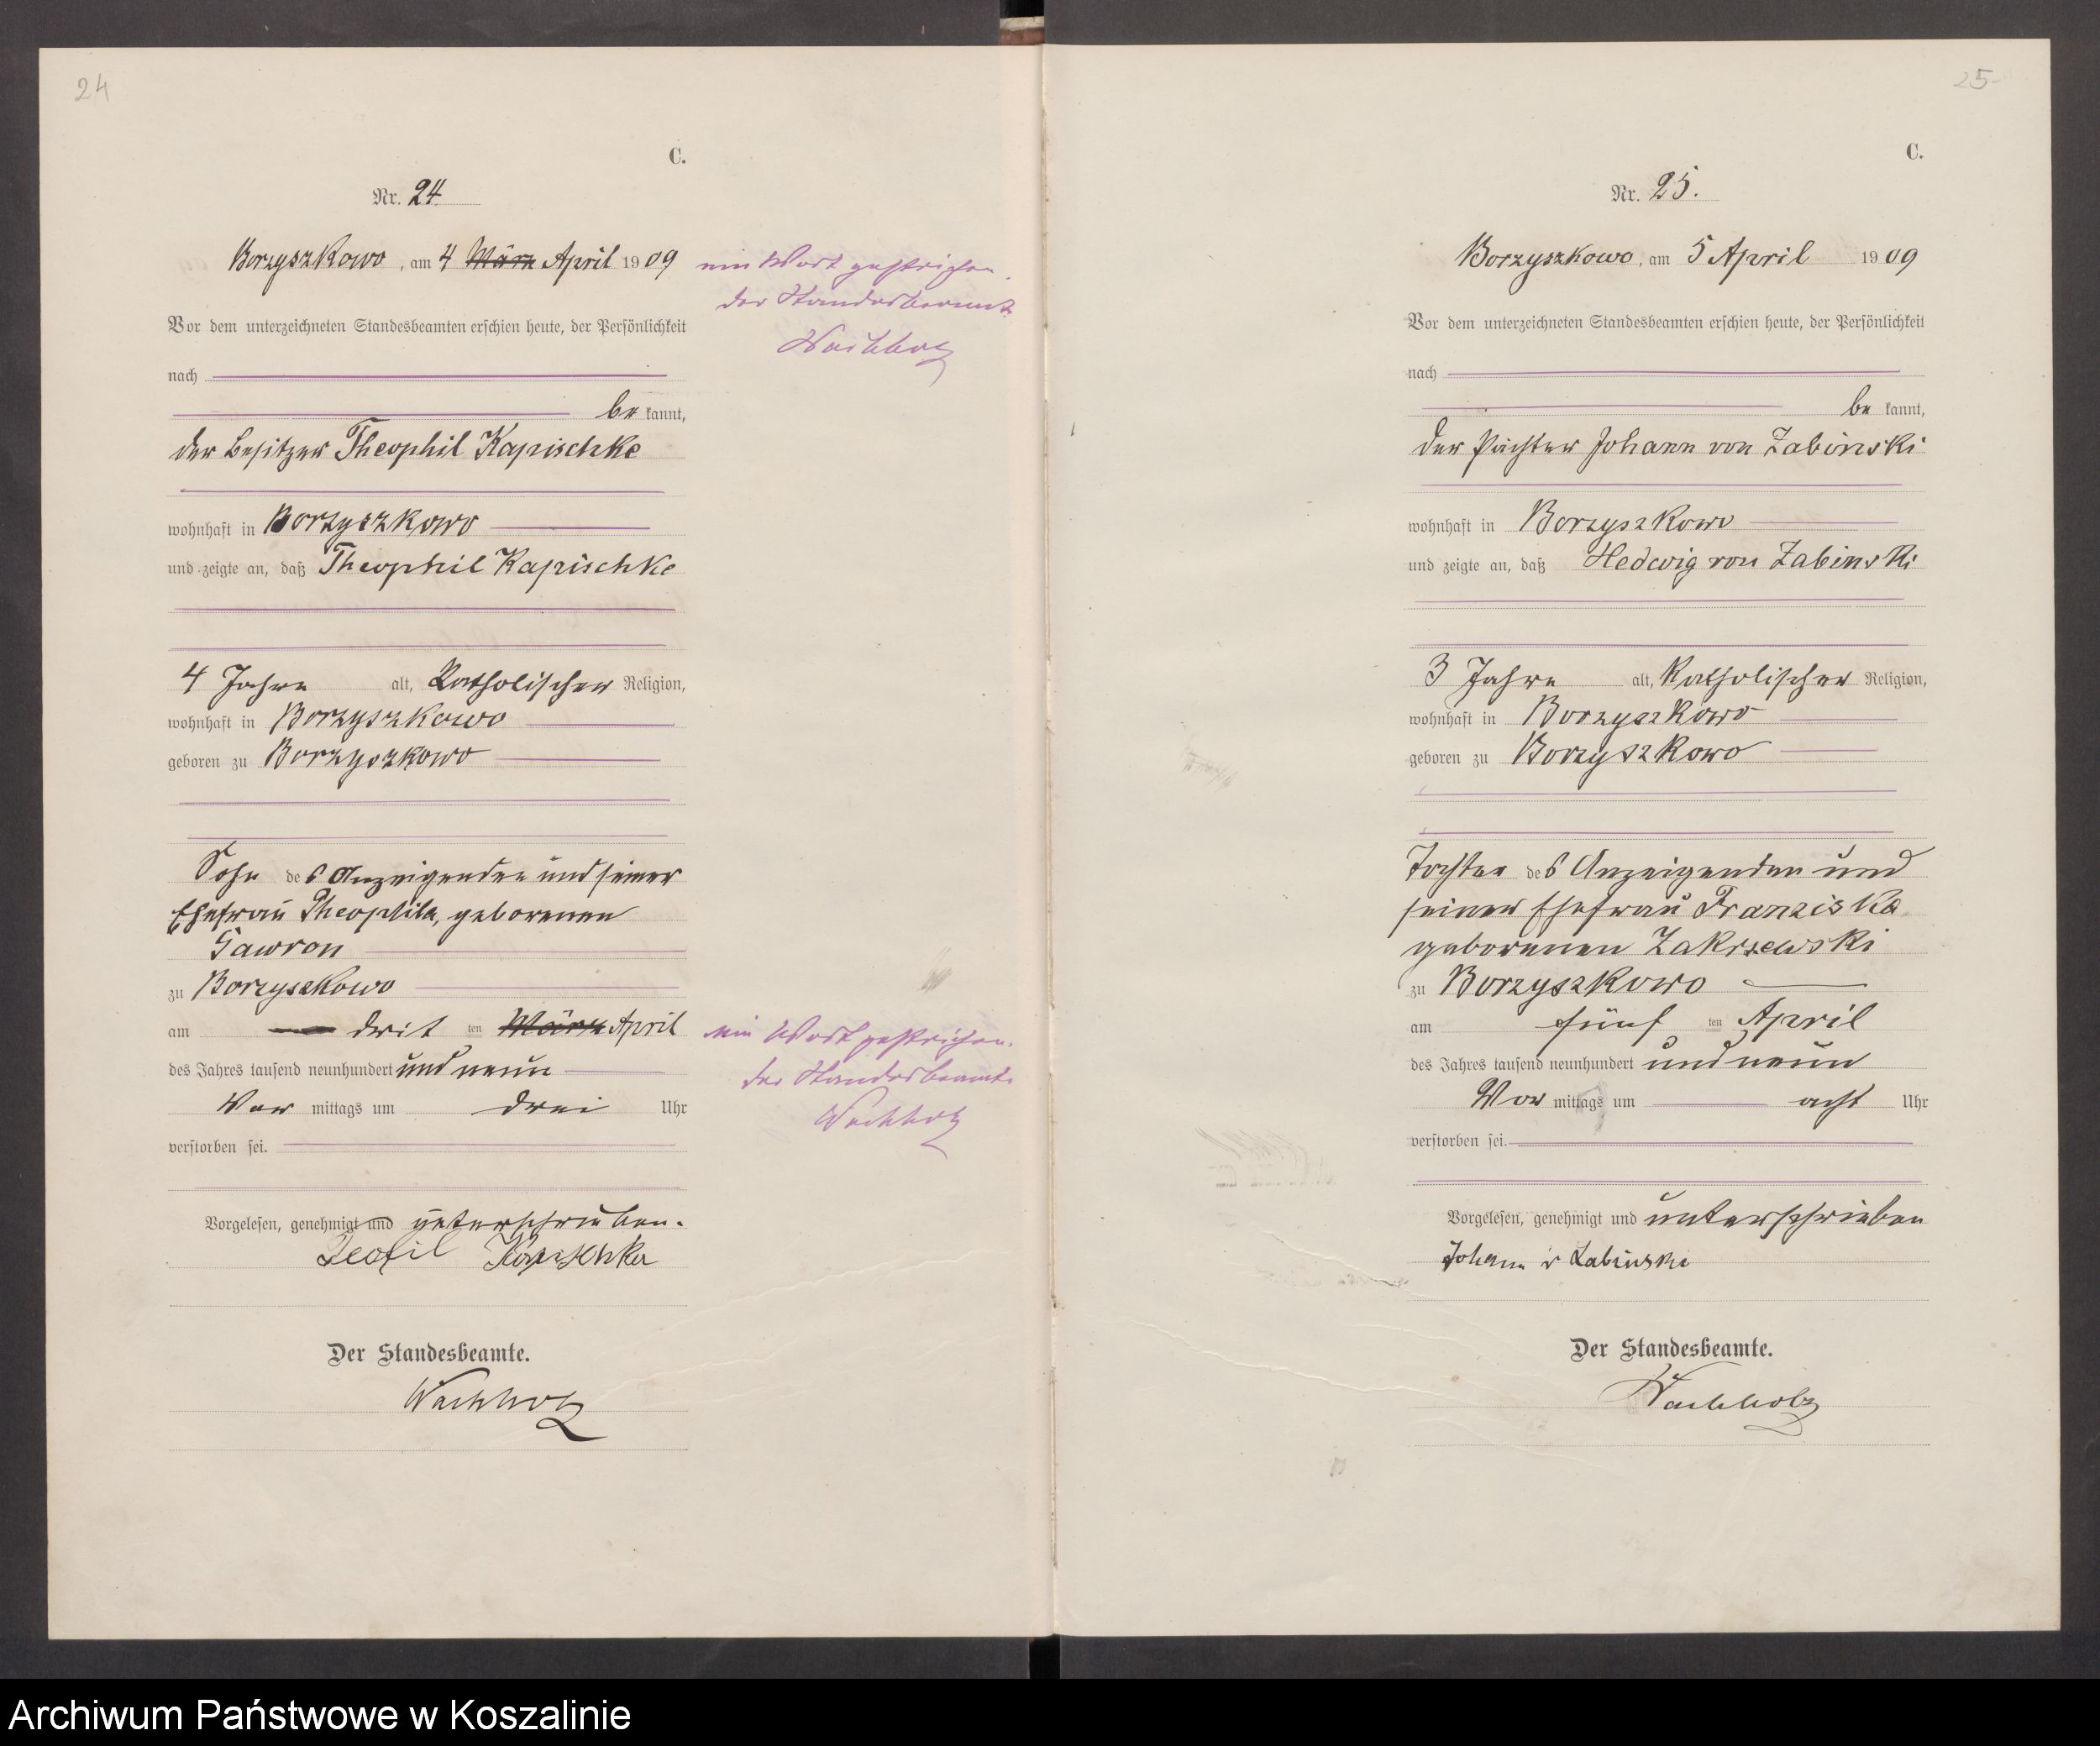 24
C.
Nr. 24
Borzyszkowo, am 4 März April 1909
ein Wort gestrichen.
der Standesbeamte
Wachholz
Vor dem unterzeichneten Standesbeamten erschien heute, der Persönlichkeit
nach
be kannt,
der Besitzer Theophil Kapischke
wohnhaft in Borzyszkowo
und zeigte an, daß Theophil Kapischke
4 Jahre alt, Katholischer Religion,
wohnhaft in Borzyszkowo
geboren zu Borzyszkowo
Sohn des Anzeigenden und seiner
Ehefrau Theophila, geborenen
Gawron
zu Borzyszkowo
am drit ten März April
ein Wort gestrichen.
der Standesbeamte
Wachholz
des Jahres tausend neunhundert und neun
Vor mittags um drei Uhr
verstorben sei.
Vorgelesen, genehmigt und unterschrieben.
Teofil Kapischka
Der Standesbeamte.
Wachholz
25
C.
Nr. 25.
Borzyszkowo, am 5 April 1909
Vor dem unterzeichneten Standesbeamten erschien heute, der Persönlichkeit
nach
be kannt,
der Pächter Johann von Zabinski
wohnhaft in Borzyszkowo
und zeigte an, daß Hedwig von Zabinski
3 Jahre alt, Katholischer Religion,
wohnhaft in Borzyszkowo
geboren zu Borzyszkowo
Tochter des Anzeigenden und
seiner Ehefrau Franziska
geborenen Zakrzewski
zu Borzyszkowo
am fünf ten April
des Jahres tausend neunhundert und neun
Vor mittags um acht Uhr
verstorben sei.
Vorgelesen, genehmigt und unterschrieben
Johann v Zabinski
Der Standesbeamte.
Wachholz
Archiwum Państwowe w Koszalinie